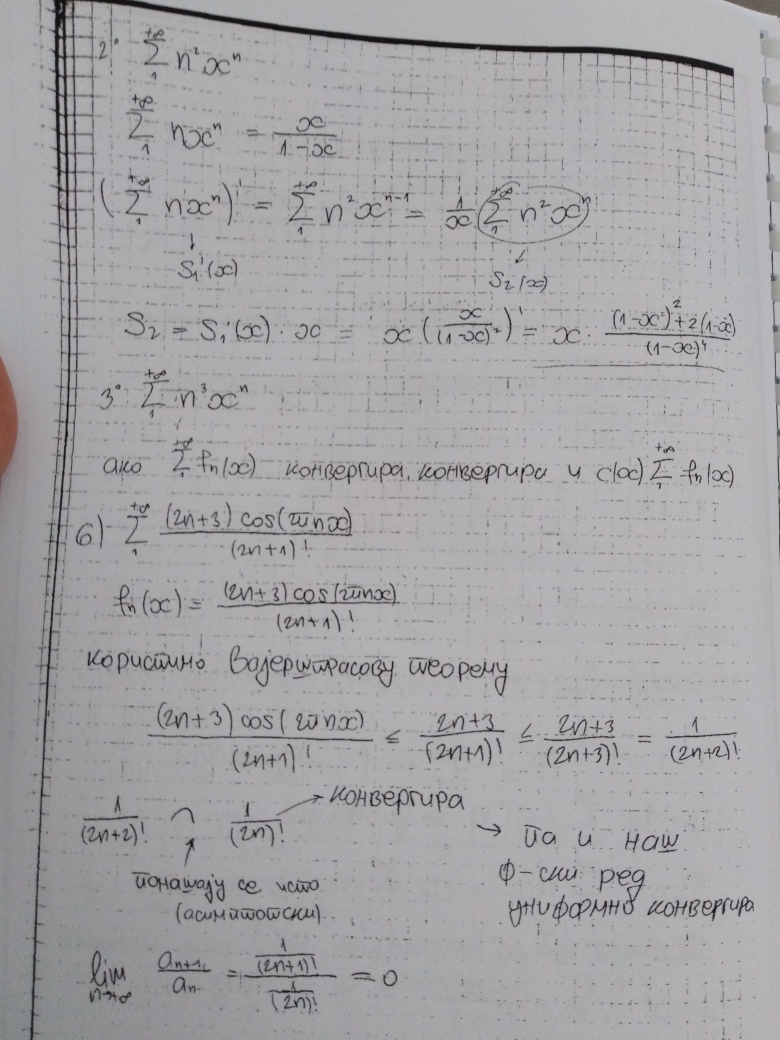 2° ∑₁^{+∞} n²xⁿ
∑₁^{+∞} nxⁿ = x/(1-x)
(∑₁^{+∞} nxⁿ)' = ∑₁^{+∞} n²xⁿ⁻¹ = 1/x (∑₁^{+∞} n²xⁿ)
↓ S₁'(x) ↓ S₂(x)
S₂ = S₁'(x) · x = x (x/(1-x)²)' = x · ((1-x)² + 2(1-x))/(1-x)⁴
3° ∑₁^{+∞} n³xⁿ
ако ∑₁^{+∞} fₙ(x) конвергира, конвергира и c(x) ∑₁^{+∞} fₙ(x)
б) ∑₁^{+∞} (2n+3) cos(2πnx)/(2n+1)!
fₙ(x) = (2n+3) cos(2πnx)/(2n+1)!
користимо Вајерштрасову теорему
(2n+3) cos(2πnx)/(2n+1)! ≤ (2n+3)/(2n+1)! ≤ (2n+3)/(2n+3)! = 1/(2n+2)!
1/(2n+2)! ~ 1/(2n)! → конвергира
понашају се исто
(асимптотски)
→ па и наш
ф-ски ред
униформно конвергира
lim_{n→+∞} aₙ₊₁/aₙ = (1/(2n+1)!)/(1/(2n)!) = 0